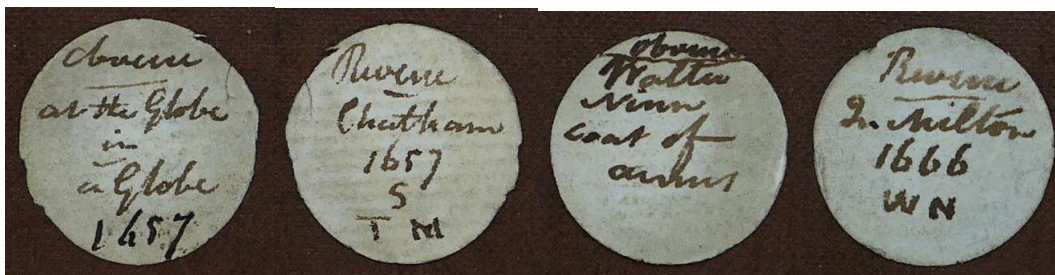 obverse
at the Globe
in
a Globe
1657
Reverse
Chatham
1657
S
T M
obverse
Walter
Ninn
coat of
arms
Reverse
In Milton
1666
W N